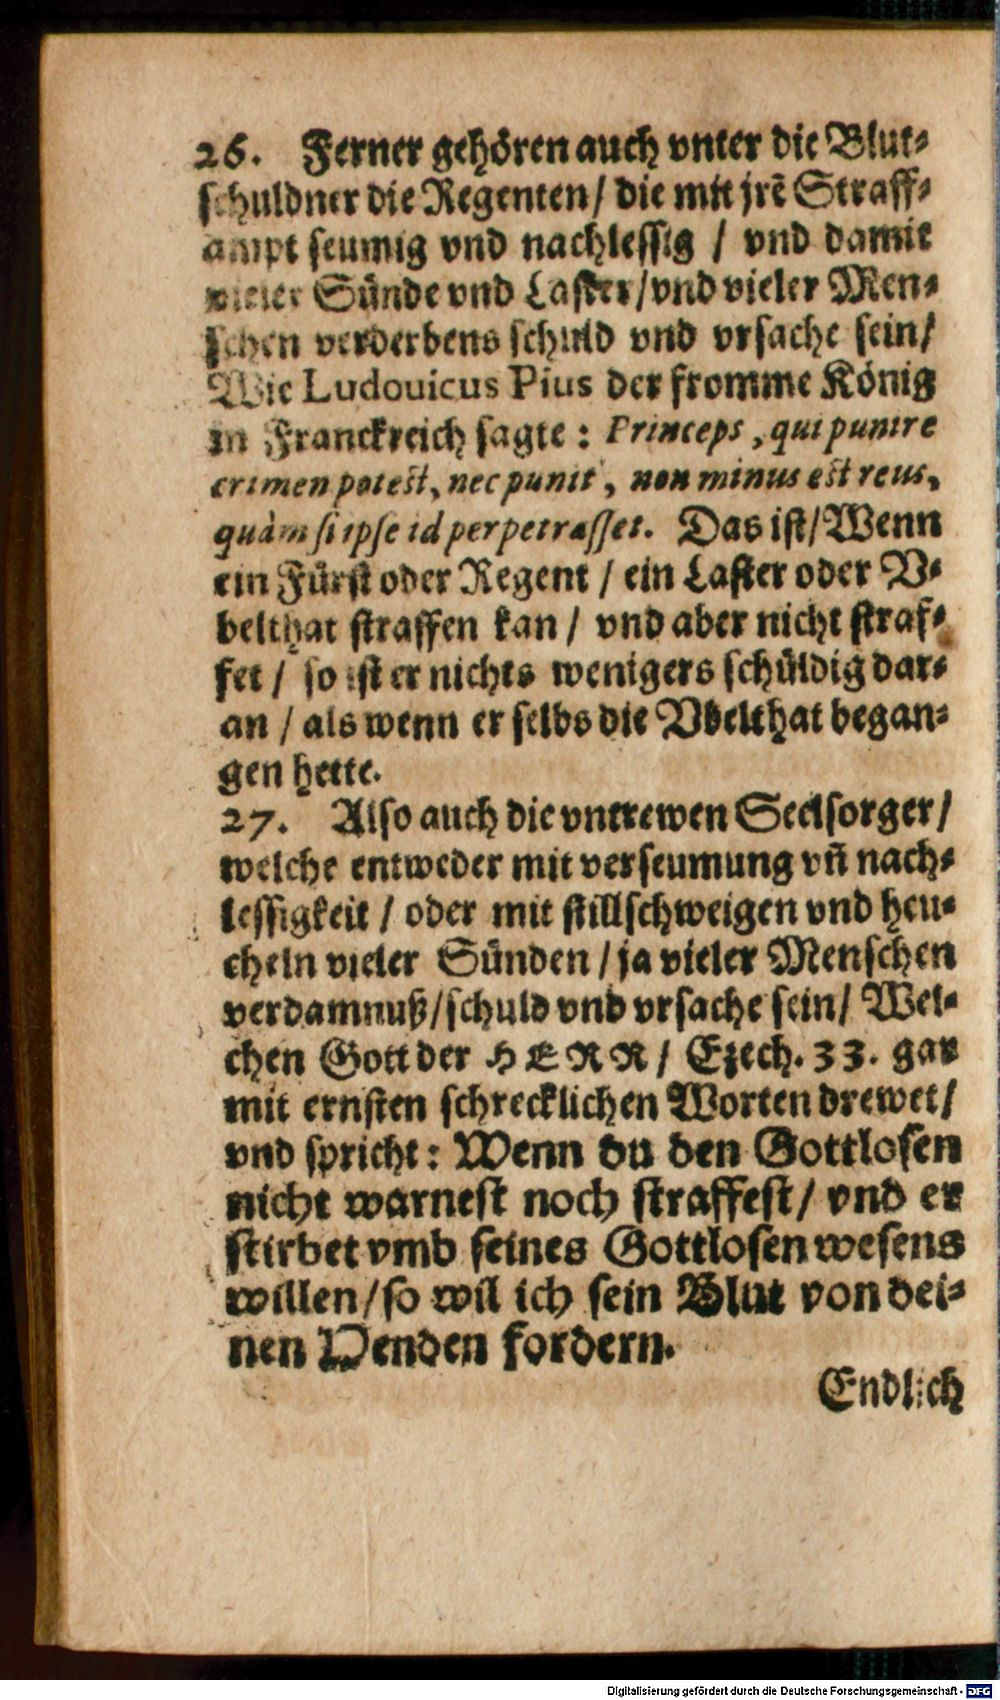 26. Ferner gehören auch vnter die Blut-
schuldner die Regenten / die mit jrẽ Straff-
ampt seumig vnd nachlessig / vnd damit
vieler Sünde vnd Laster / vnd vieler Men-
schen verderbens schuld vnd vrsache sein /
Wie Ludouicus Pius der fromme König
in Franckreich sagte : Princeps , qui punire
crimen potest, nec punit , non minus est reus,
quàm si ipse id perpetrasset. Das ist / Wenn
ein Fürst oder Regent / ein Laster oder V-
belthat straffen kan / vnd aber nicht straf-
fet / so ist er nichts wenigers schüldig dar-
an / als wenn er selbs die Vbelthat began-
gen hette.
27. Also auch die vntrewen Seelsorger /
welche entweder mit verseumung vñ nach-
lessigkeit / oder mit stillschweigen vnd heu-
cheln vieler Sünden / ja vieler Menschen
verdamnuß / schuld vnd vrsache sein / Wel-
chen Gott der HERR / Ezech. 33. gar
mit ernsten schrecklichen Worten drewet /
vnd spricht : Wenn du den Gottlosen
nicht warnest noch straffest / vnd er
stirbet vmb seines Gottlosen wesens
willen / so wil ich sein Blut von dei-
nen Henden fordern.
Endlich
Digitalisierung gefördert durch die Deutsche Forschungsgemeinschaft - DFG